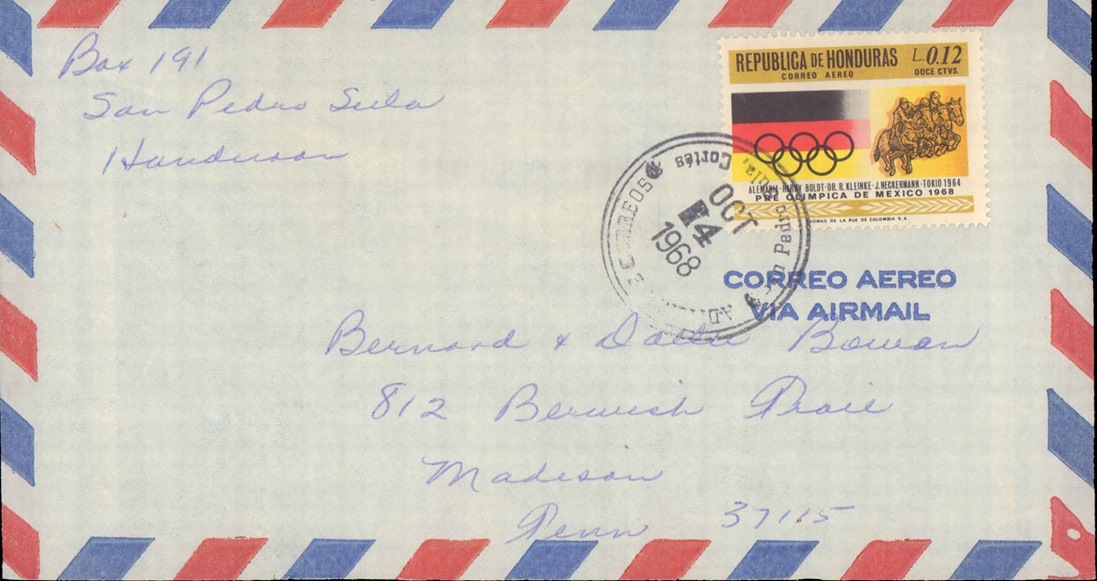 Box 191
San Pedro Sula
Honduras
REPUBLICA DE HONDURAS L.0.12
CORREO AEREO DOCE CTVS.
ALEMANIA-HARRY BOLDT-DR. R. KLEINKE-J. NECKERMANN-TOKIO 1964
PRE OLIMPICA DE MEXICO 1968
THOMAS DE LA RUE DE COLOMBIA S.A.
San Pedro Sula, Cortés
OCT
14
1968
CORREO AEREO
VIA AIRMAIL
Bernard & Bowan
812 Berwick Trail
Madison
Tenn 37115